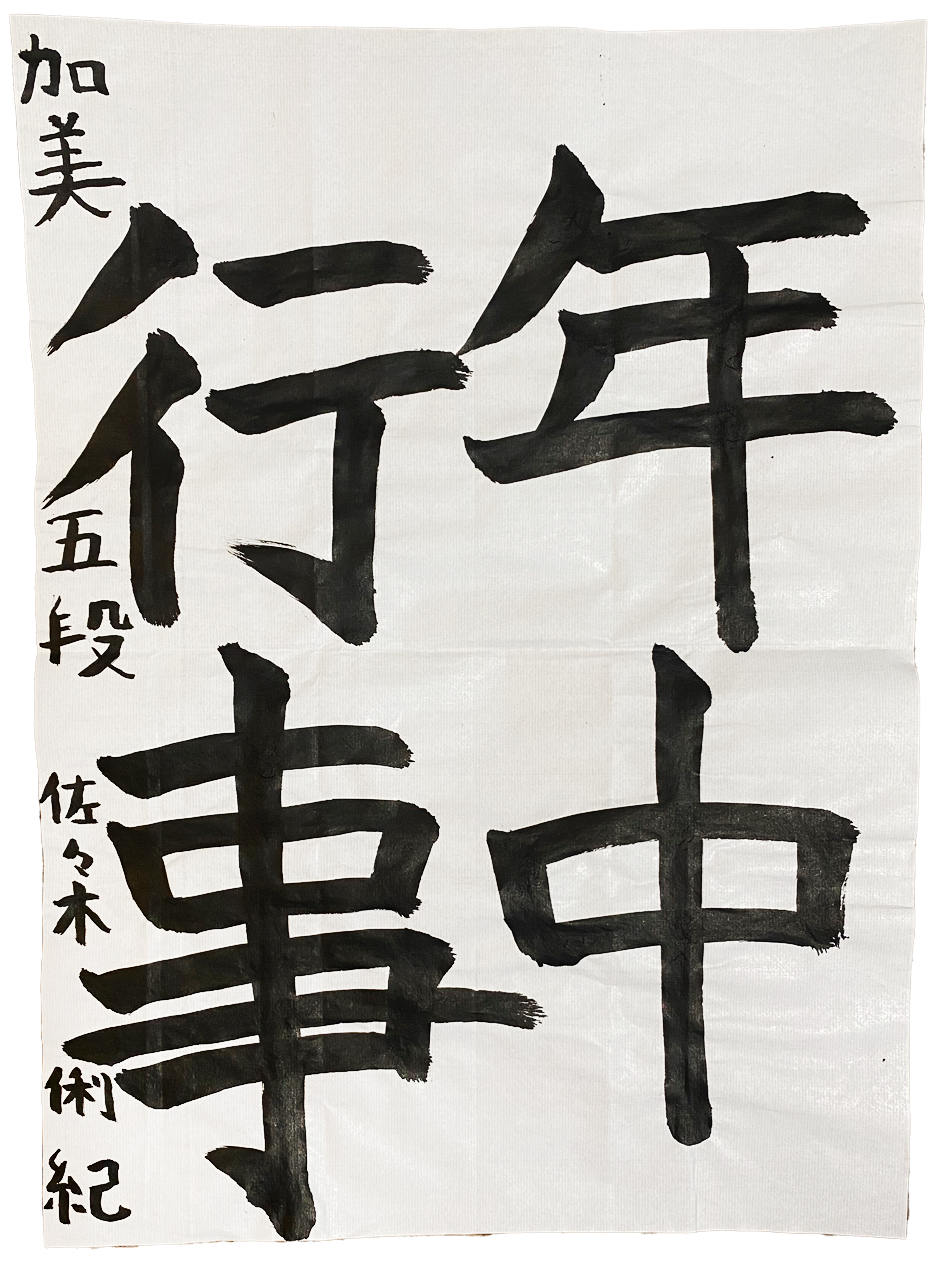 年中
行事
加美 五段 佐々木 俐紀